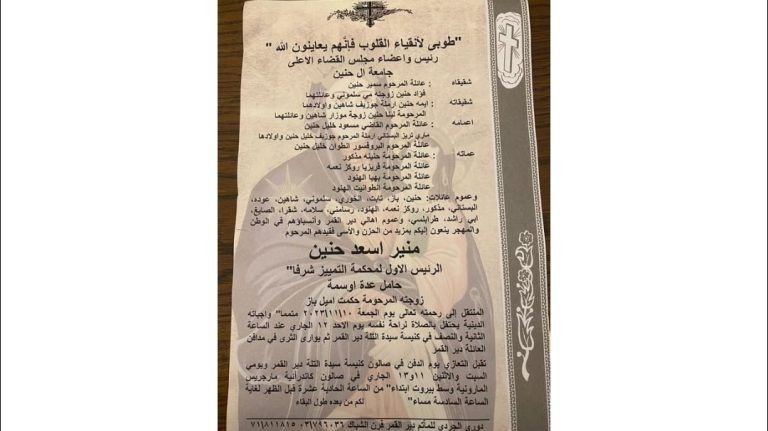 "طوبى لأنقياء القلوب فإنّهم يعاينون الله"
رئيس واعضاء مجلس القضاء الاعلى
جامعة ال حنين
شقيقاه : عائلة المرحوم سمير حنين
فؤاد حنين زوجته مي سلموني وعائلتهما
شقيقاته : ايمه حنين ارملة جوزيف شاهين واولادهما
المرحومة لينا حنين زوجة موزار شاهين وعائلتهما
اعمامه : عائلة المرحوم القاضي مسعود خليل حنين
ماري تريز البستاني ارملة المرحوم جوزيف خليل حنين واولادها
عائلة المرحوم البروفسور انطوان خليل حنين
عماته : عائلة المرحومة حنينه مذكور
عائلة المرحومة فريزيا روكز نعمه
عائلة المرحومة بهيا الهنود
عائلة المرحومة انطوانيت الهنود
وعموم عائلات: حنين، باز، ثابت، الخوري، سلموني، شاهين، عوده،
البستاني، مذكور، روكز نعمه، الهنود، رسامني، سلامه، شقرا، الصايغ،
ابي راشد، طرابلسي، وعموم اهالي دير القمر وأنسباؤهم في الوطن
والمهجر ينعون إليكم بمزيد من الحزن والاسى فقيدهم المرحوم
منير اسعد حنين
الرئيس الاول لمحكمة التمييز شرفا"
حامل عدة اوسمة
زوجته المرحومة حكمت اميل باز
المنتقل إلى رحمته تعالى يوم الجمعة ٢٠٢٣/١١/١٠ متمما" واجباته
الدينية يحتفل بالصلاة لراحة نفسه يوم الاحد ١٢ الجاري عند الساعة
الثانية والنصف في كنيسة سيدة التلة دير القمر ثم يوارى الثرى في مدافن
العائلة دير القمر
تقبل التعازي يوم الدفن في صالون كنيسة سيدة التلة دير القمر ويومي
السبت والاثنين ١١و١٣ الجاري في صالون كاتدرائية مارجريس
المارونية وسط بيروت ابتداء" من الساعة الحادية عشرة قبل الظهر لغاية
الساعة السادسة مساء" لكم من بعده طول البقاء
دوري الجردي للمآتم دير القمر فرن الشباك ٠٣/٧٩٦٠٣٦ ٧١/٨١١٨١٥